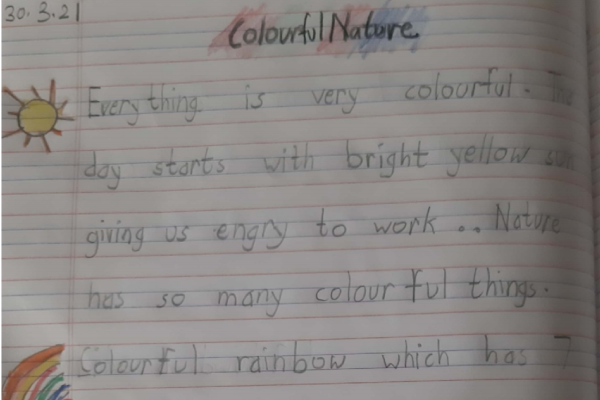 30.3.21
Colourful Nature
Everything is very colourful. The
day starts with bright yellow sun
giving us engry to work .. Nature
has so many colourful things.
Colourful rainbow which has 7